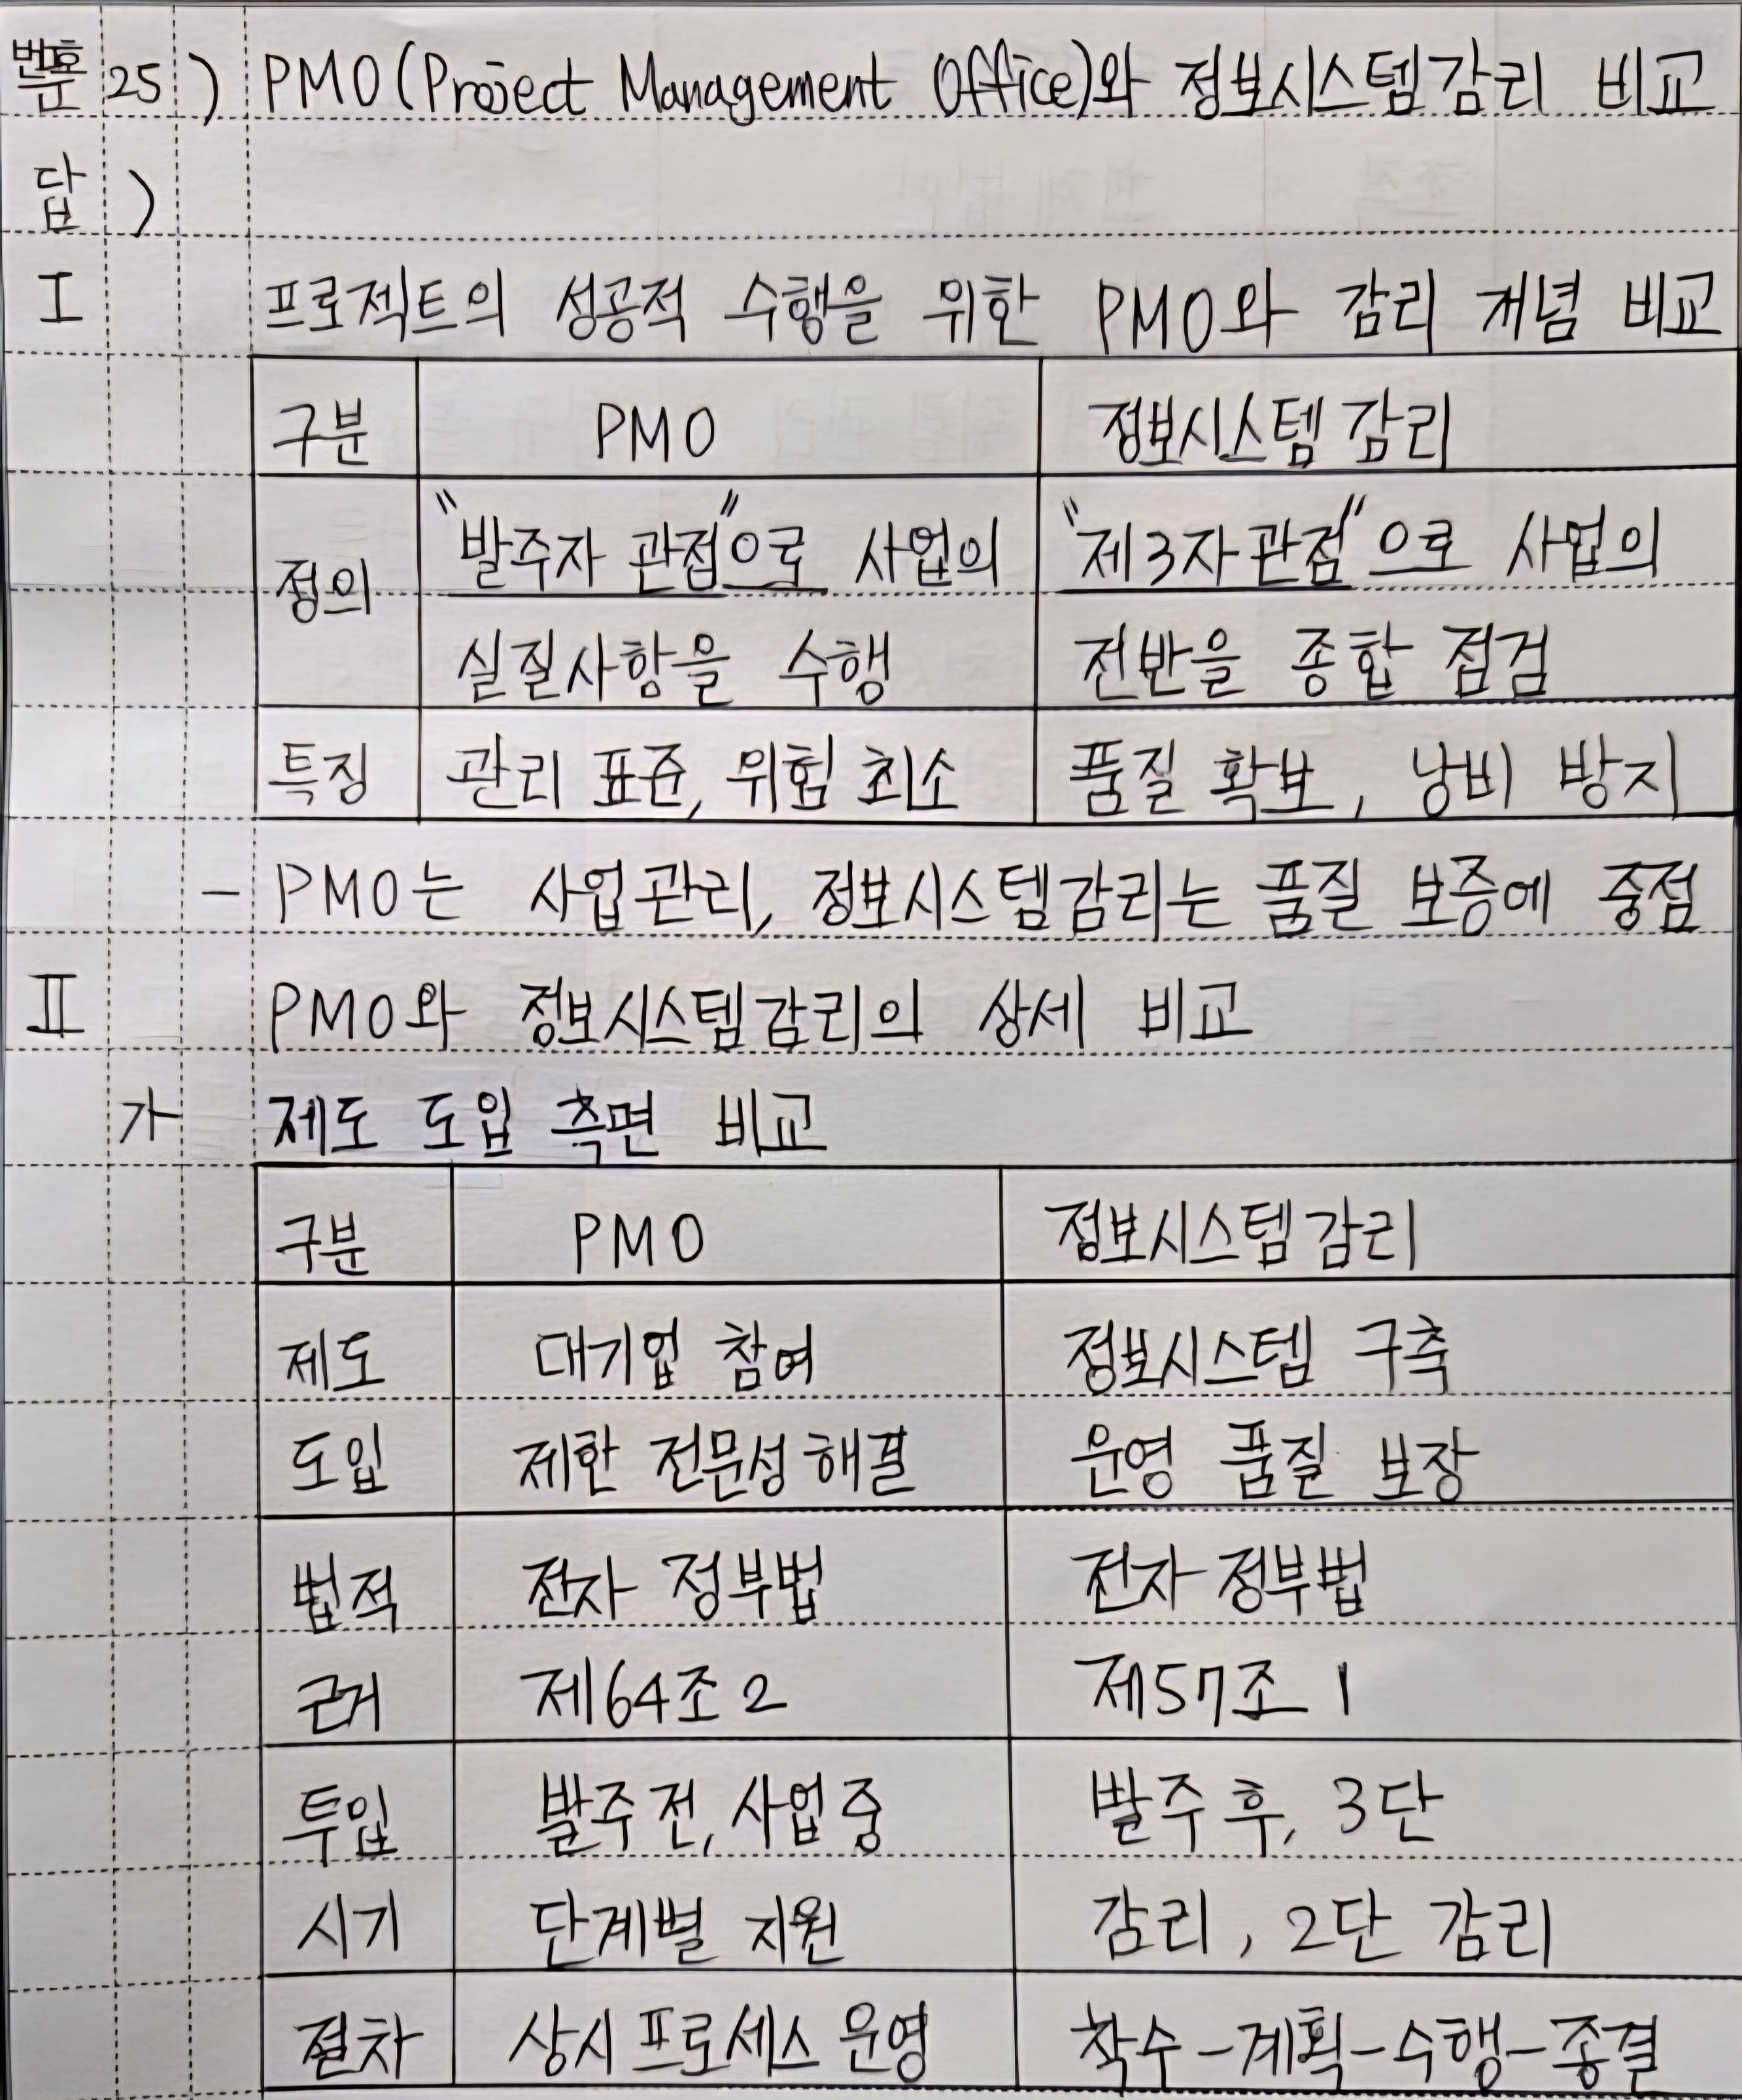 번호 25) PMO(Project Management Office)와 정보시스템감리 비교
답)
I 프로젝트의 성공적 수행을 위한 PMO와 감리 개념 비교
구분 PMO 정보시스템 감리
정의 "발주자 관점"으로 사업의 "제3자관점"으로 사업의
실질사항을 수행 전반을 종합 점검
특징 관리 표준, 위험 최소 품질 확보, 낭비 방지
- PMO는 사업관리, 정보시스템감리는 품질 보증에 중점
II PMO와 정보시스템감리의 상세 비교
가 제도 도입 측면 비교
구분 PMO 정보시스템감리
제도 대기업 참여 정보시스템 구축
도입 제한 전문성 해결 운영 품질 보장
법적 전자 정부법 전자 정부법
근거 제64조 2 제57조 1
투입 발주전, 사업중 발주 후, 3단
시기 단계별 지원 감리, 2단 감리
절차 상시 프로세스 운영 착수-계획-수행-종결